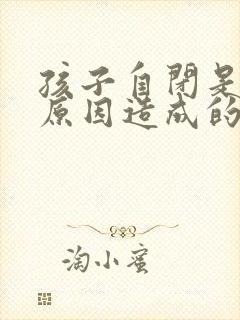 孩子自闭是
原因造成的
淘小蜜